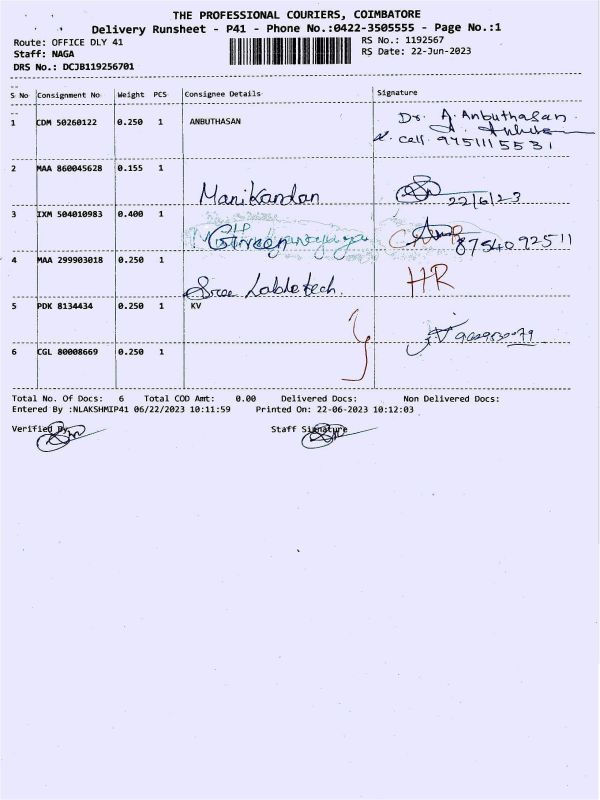 THE PROFESSIONAL COURIERS, COIMBATORE
Delivery Runsheet - P41 - Phone No.:0422-3505555 - Page No.:1
Route: OFFICE DLY 41 RS No.: 1192567
Staff: NAGA RS Date: 22-Jun-2023
DRS No.: DCJB119256701
S No Consignment No Weight PCS Consignee Details Signature
1 CDM 50260122 0.250 1 ANBUTHASAN Dr. A. Anbuthasan.
cell. 9751115531
2 MAA 860045628 0.155 1
Manikandan 22/6/23
3 IXM 504010983 0.400 1
Green 8754092511
4 MAA 299903018 0.250 1 HR
Sree Labdetech.
5 PDK 8134434 0.250 1 KV
6 CGL 80008669 0.250 1
Total No. Of Docs: 6 Total COD Amt: 0.00 Delivered Docs: Non Delivered Docs:
Entered By :NLAKSHMIP41 06/22/2023 10:11:59 Printed On: 22-06-2023 10:12:03
Verified By Staff Signature